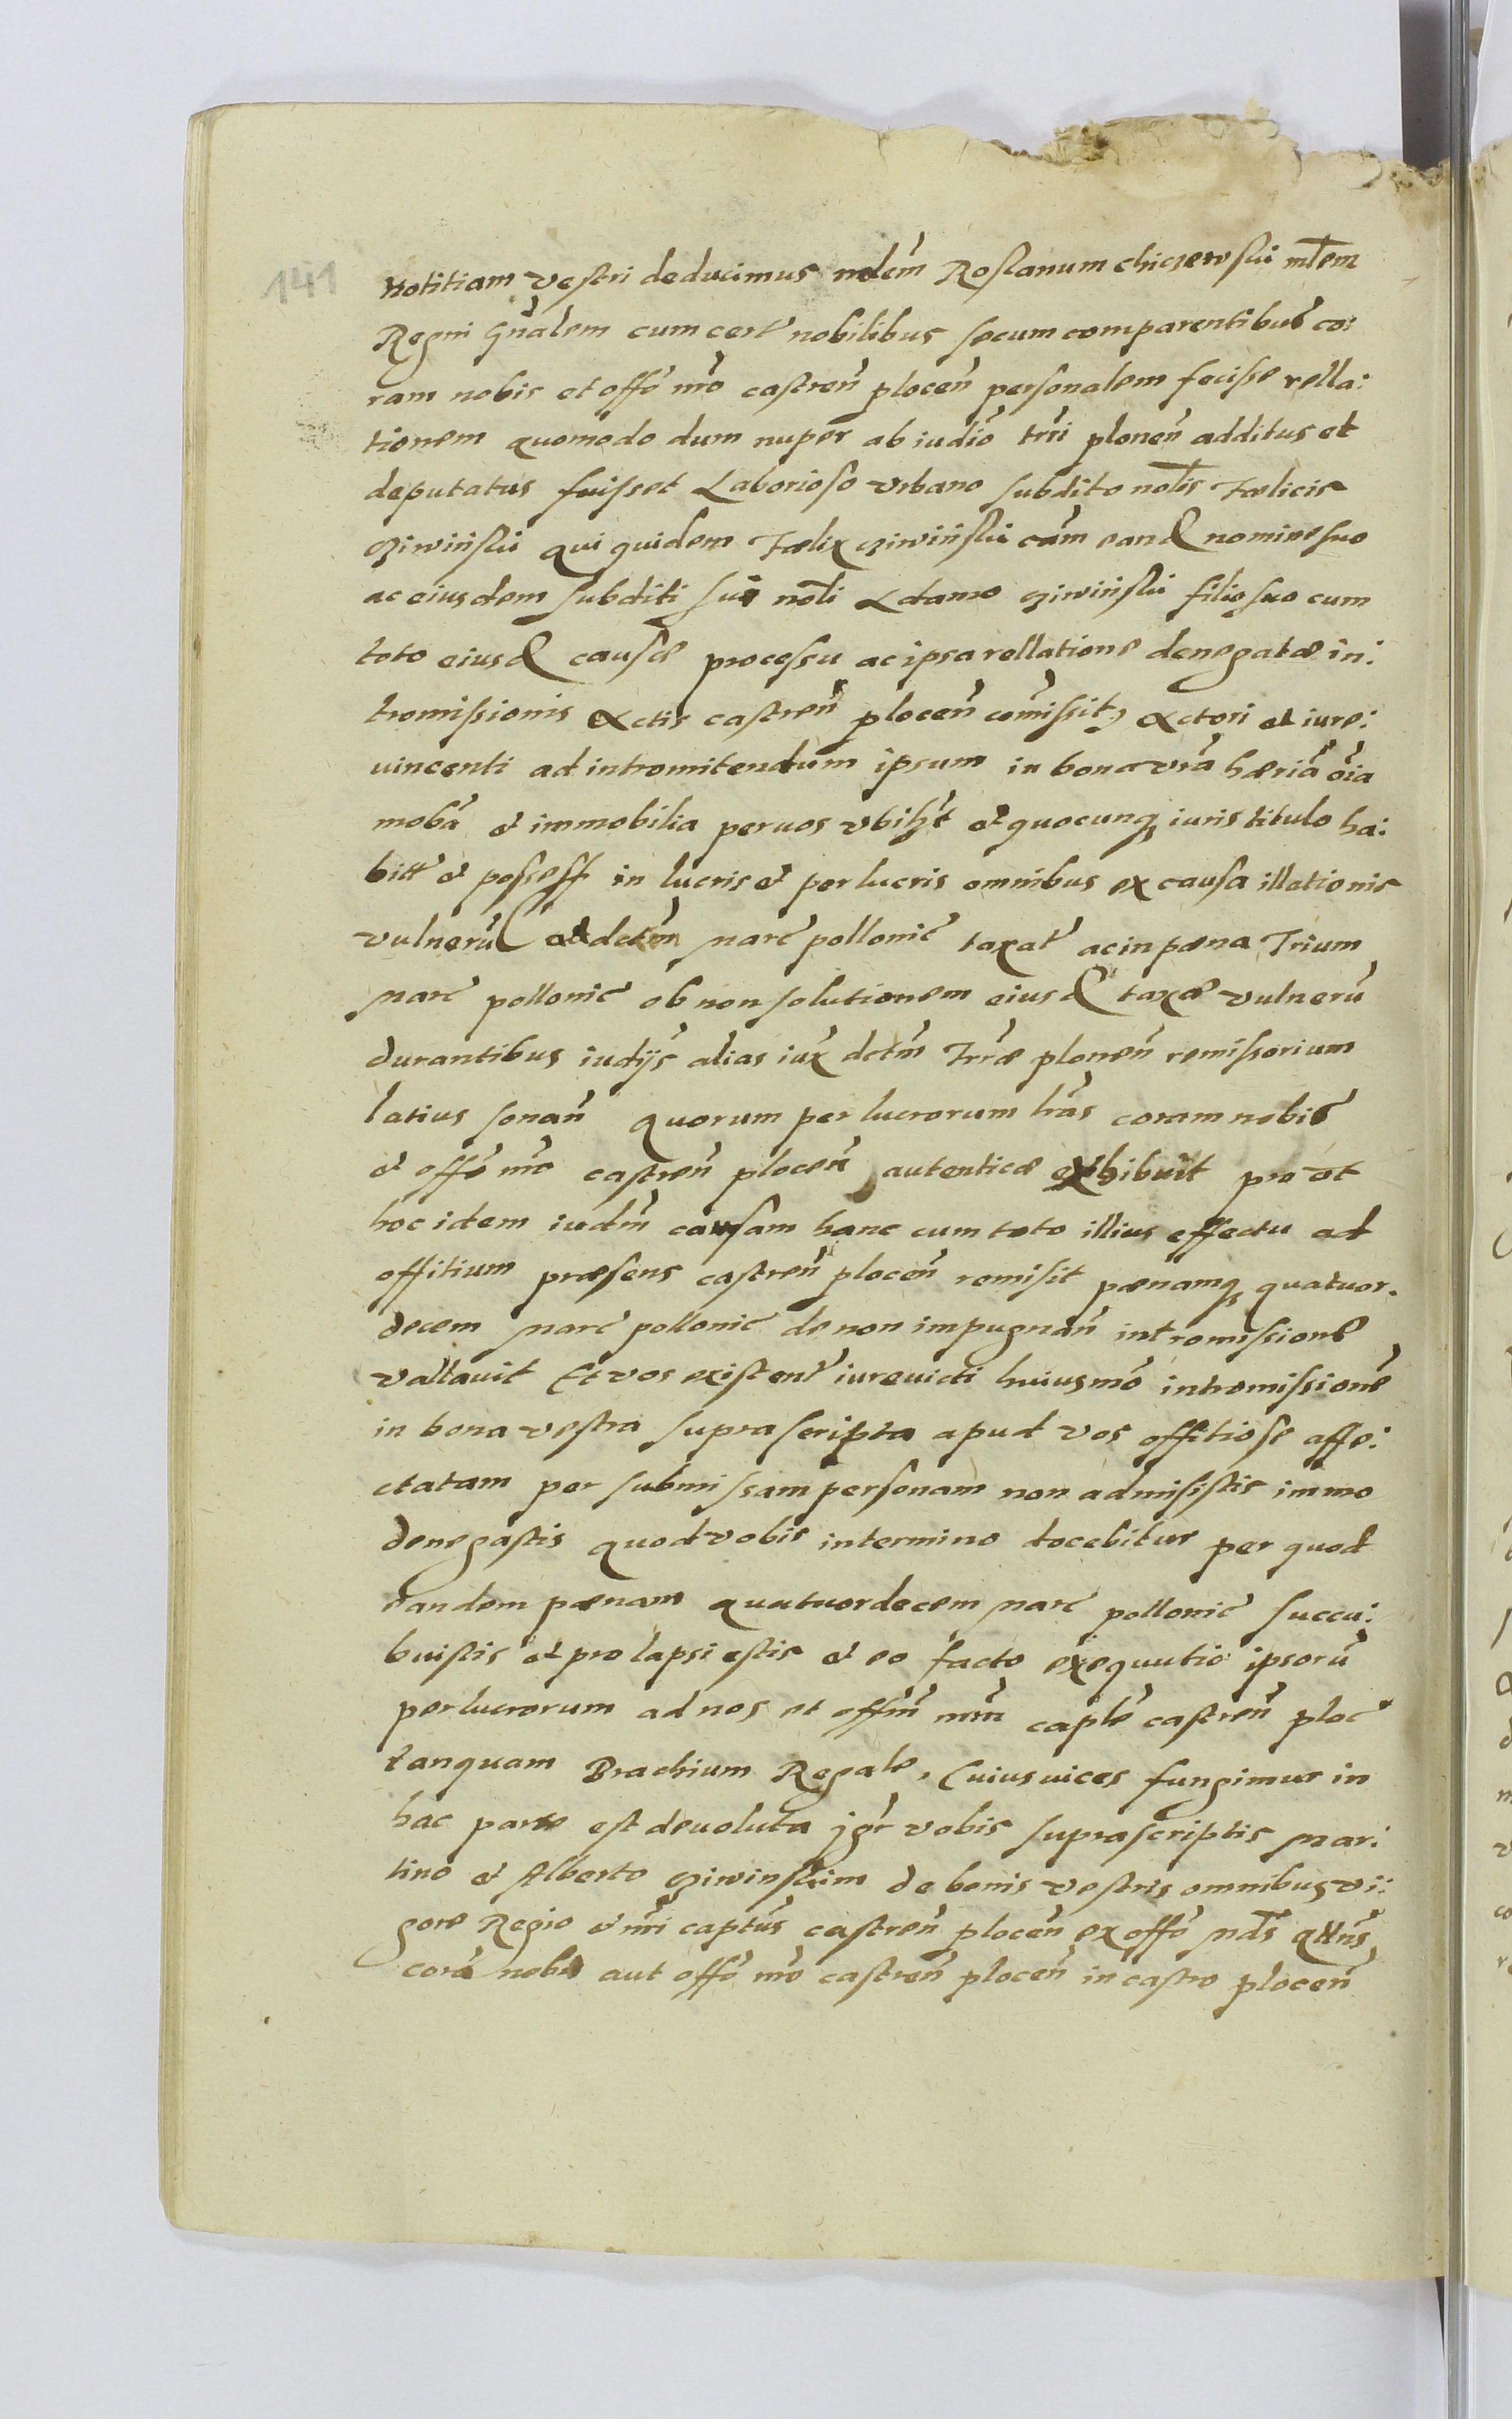 141
notitiam vestri deducimus ndem̃ Roslanum chiczewski ml̃em
Regni Gñalem cum cert̃ nobilibus secum comparentibus co:
ram nobis et offõ nr̃o castren̄ plocen̄ personalem fecisse rella:
tionem quomodo dum nuper ab iudiõ trr̃i plonen̄ additus et
deputatus fuisset Laborioso Urbano subdito nol̃is Fœlicis
qui quidem Fœlix cãm eand nomine suo
ac eiusdem subditi sui nol̃i Adamo filio suo cum
toto eiusd causæ processu ac ipsa rellatione denegatæ in:
tromissionis Actis castren̄ plocen̄ com̃issit, Actori et iure:
uincenti ad intromitendum ipsum in bona vr̃a hæriã oĩa
mobã et immobilia per vos ubilz̃t et quocunq iuris titulo ha:
bitt̃ et possess in lucris et perlucris omnibus ex causa illationis
vulnerũ ad decem̃ marc̃ pollonic̃ taxat̃ ac in pœna Trium
marc̃ pollonic̃ ob non solutionem eiusd taxæ vulnerũ
durantibus iudijs̃ alias iux̃ dctm̃ Trr̃æ plonen̄ remissorium
latius sonan̄ quorum perlucrorum lr̃as coram nobis
et offõ nr̃o castren̄ plocen̄ autenticæ exhibuit pro ut
hoc idem iudm̃ causam hanc cum toto illius effectu ad
offitium præsens castren̄ plocen̄ remisit pœnamq quatuor.
decem marc̃ pollonic̃ de non impugnan̄ intromissione
vallauit Et vos existent̃ iureuicti huiusmõ intromissionẽ
in bona vestra suprascripta apud vos offitiose affe:
ctatam per submissam personam non admisistis immo
denegastis quod vobis in termino docebitur per quod
eandem pœnam quatuordecem marc̃ pollonic̃ succu:
buistis et prolapsi estis et eo facto exequutio ipsorũ
perlucrorum ad nos et offm̃ nr̃m caplẽ castren̄ ploc̃
tanquam Brachium Regale, Cuius uices fungimur in
hac parte est deuoluta jgr̃ vobis suprascriptis Mar:
tino et Alberto de bonis vestris omnibus vi:
gore Regio et nr̃i captũs castren̄ plocen̄ ex offõ mds̃ qttñs
corã nobis aut offõ nr̃o castren̄ plocen̄ in castro plocen̄